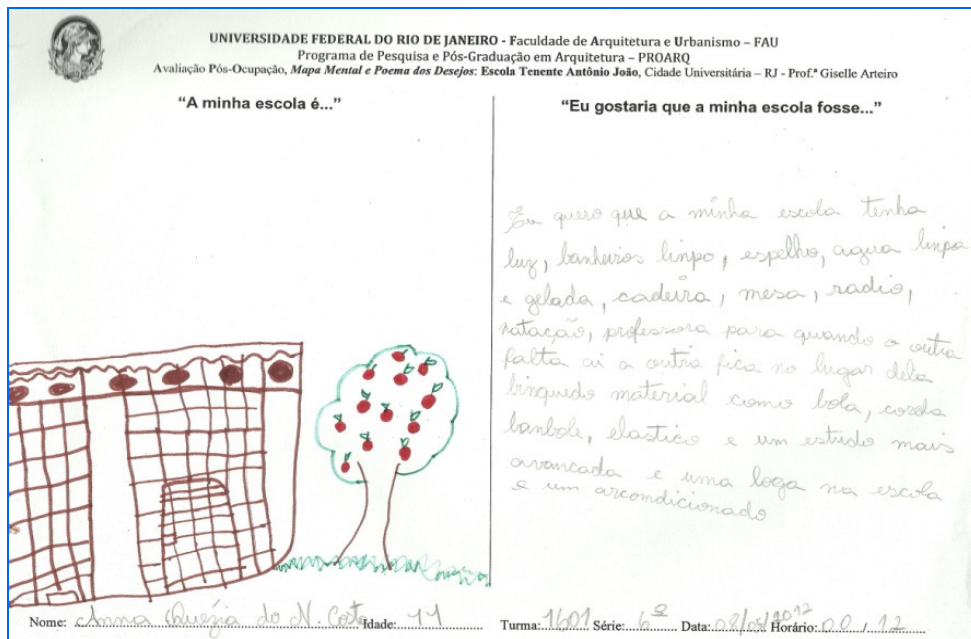 UNIVERSIDADE FEDERAL DO RIO DE JANEIRO - Faculdade de Arquitetura e Urbanismo – FAU
Programa de Pesquisa e Pós-Graduação em Arquitetura – PROARQ
Avaliação Pós-Ocupação, Mapa Mental e Poema dos Desejos: Escola Tenente Antônio João, Cidade Universitária – RJ - Prof.ª Giselle Arteiro
"A minha escola é..."
"Eu gostaria que a minha escola fosse..."
Eu quero que a minha escola tenha
luz, banheiros linpo, espelho, agua linpa
e gelada, cadeira, mesa, radio,
natação, professora para quando a outra
falta ai a outra fica no lugar dela
brinquedo material como bola, corda
banbole, elastico e um estudo mais
avancada e uma loga na escola
e um arcomdicionado
Nome: Anna do N. Costa Idade: 11
Turma: 1601 Série: 6ª Data: 08/05/2012 Horário: